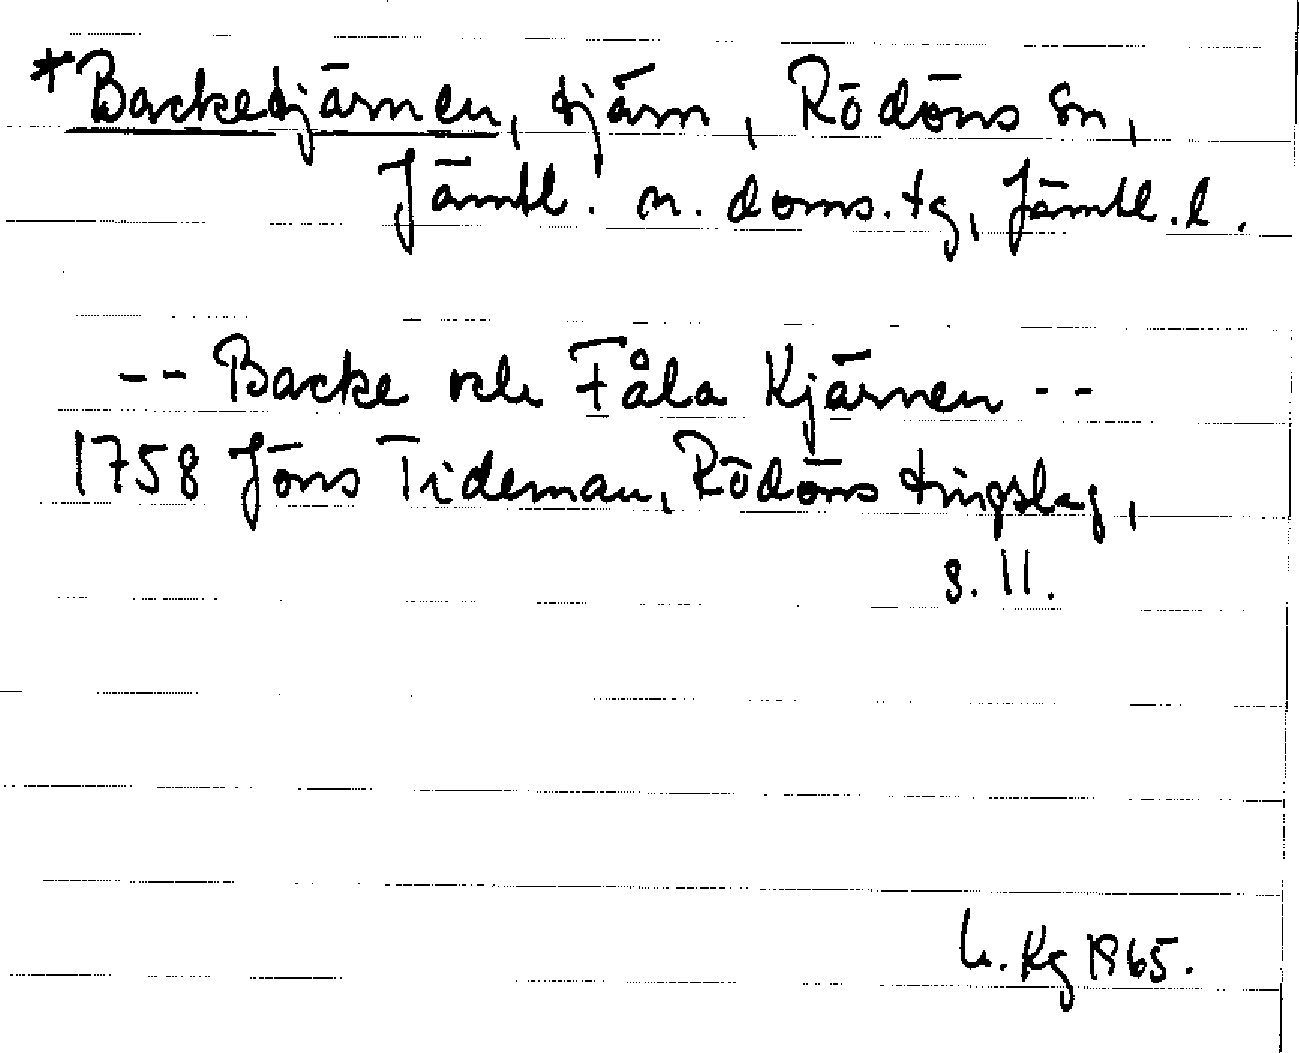 *Backetjärnen, tjärn, Rödöns sn,
Jämtl. n. doms. tg, Jämtl. l.
-- Backe och Fåla Kjärnen --
1758 Jöns Tideman, Rödöns tingslag,
s. 11.
Kg 1965.